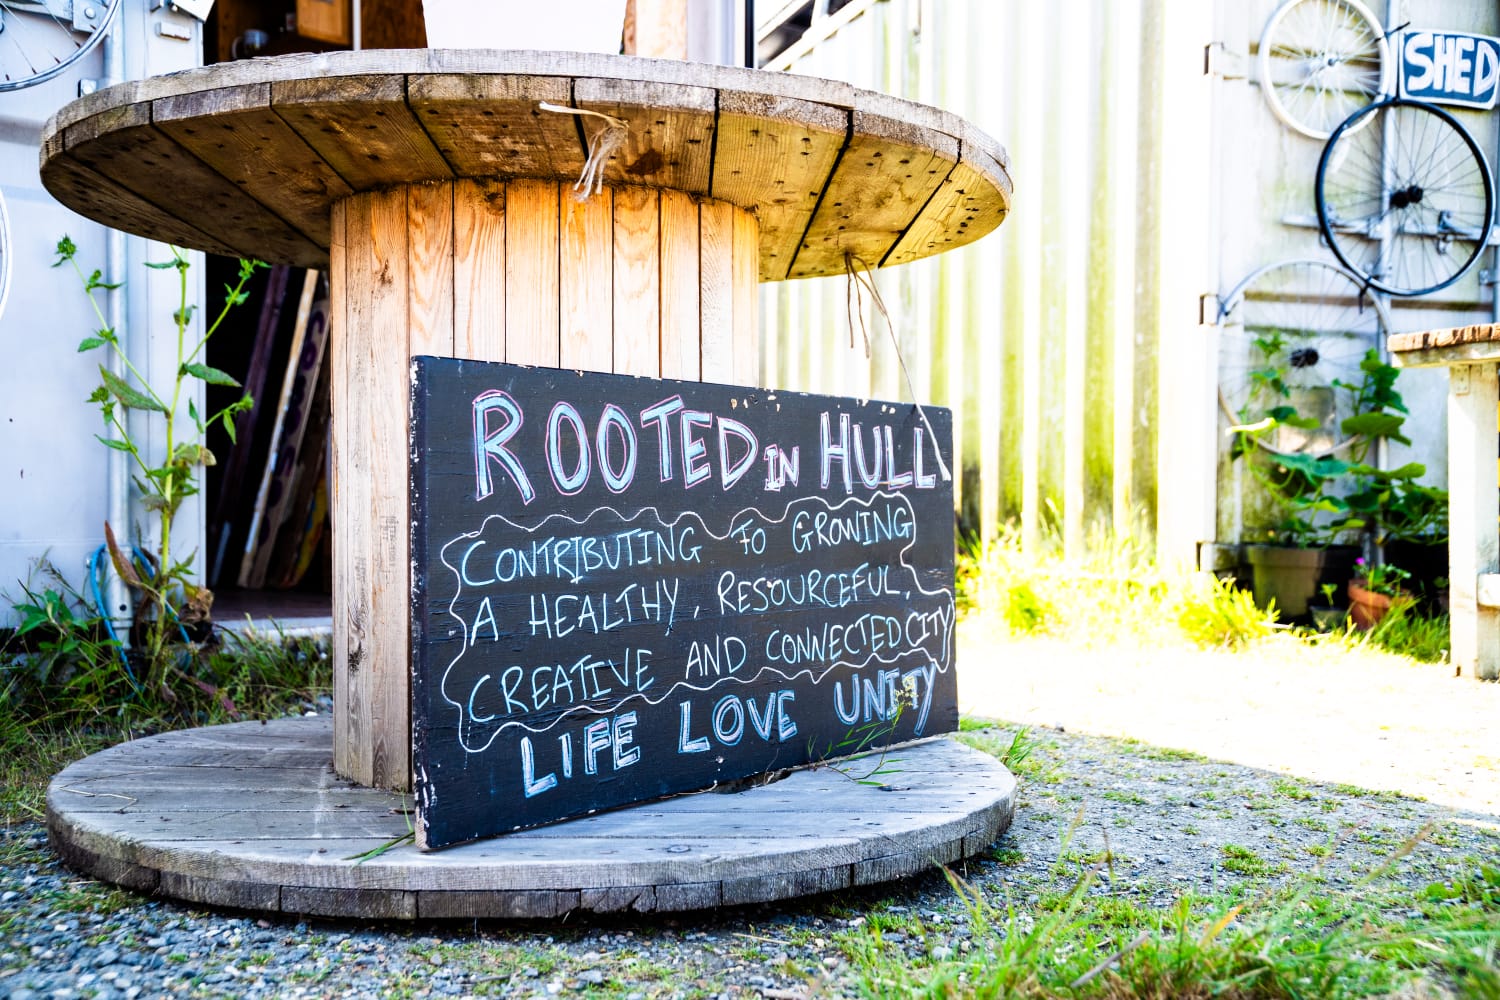 SHED
ROOTED IN HULL
CONTRIBUTING TO GROWING
A HEALTHY, RESOURCEFUL,
CREATIVE AND CONNECTED CITY
LIFE LOVE UNITY